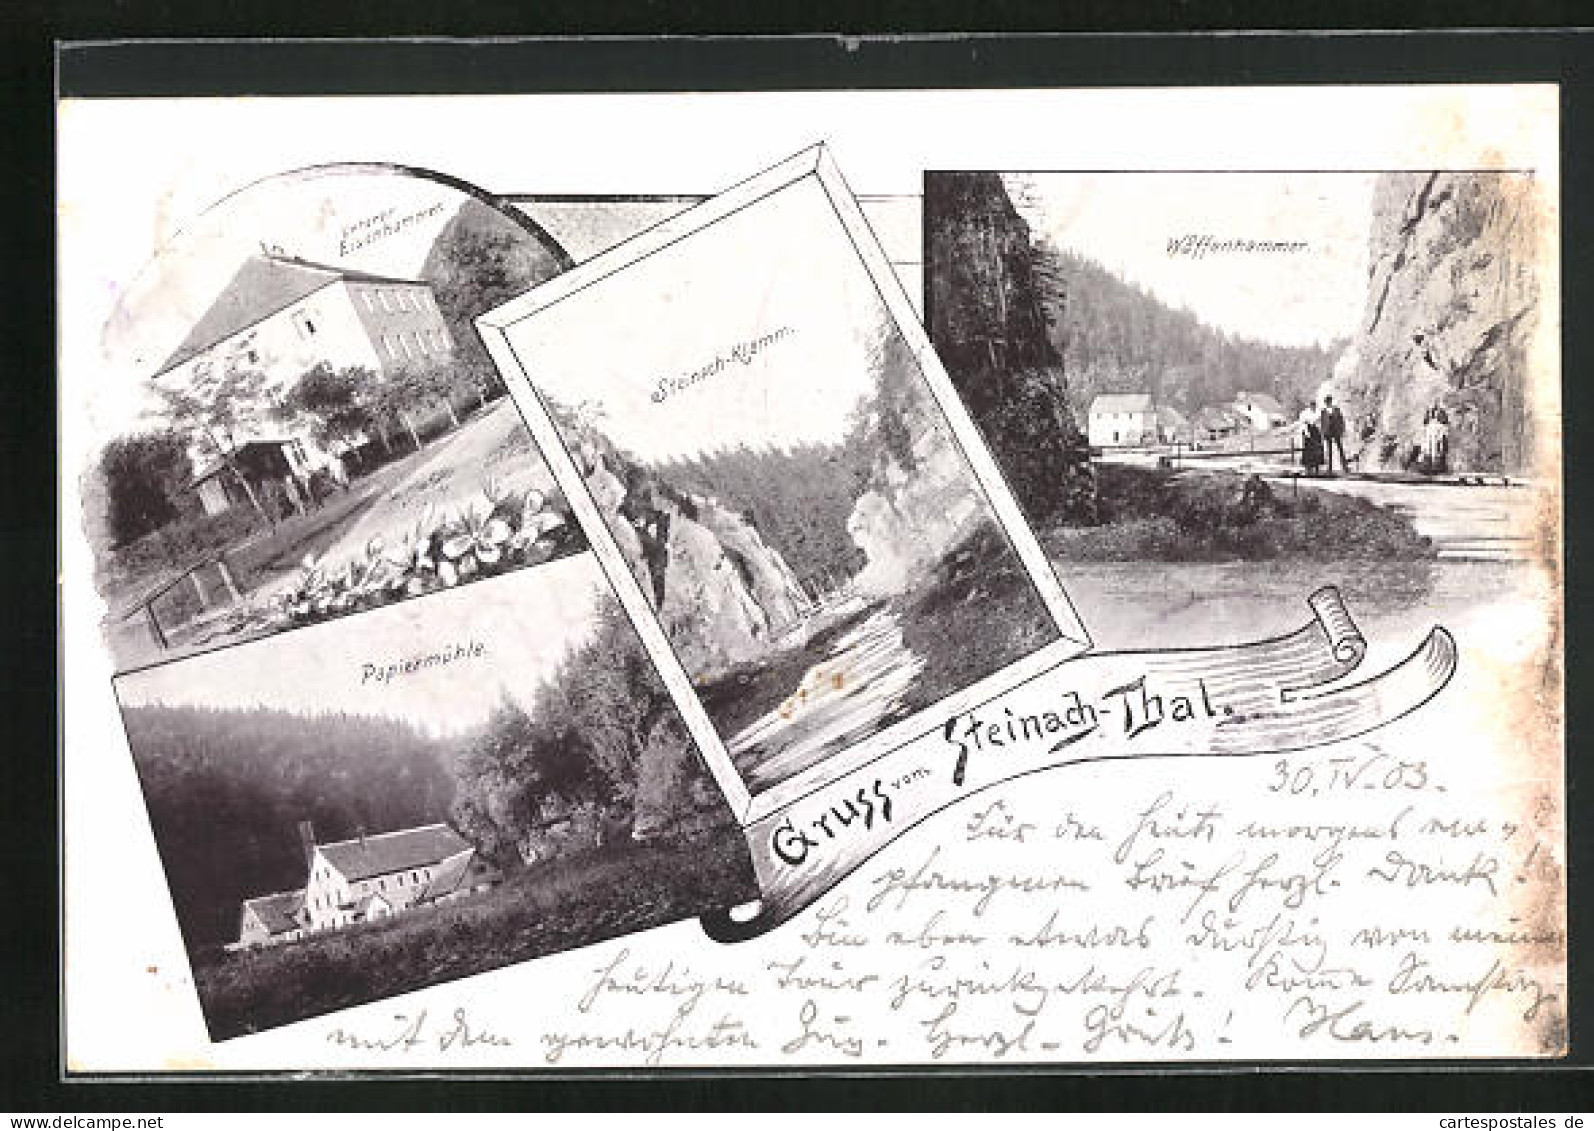 unterer
Eisenhammer.
Steinach-Klamm.
Waffenhammer.
Papiermühle.
Gruss vom Steinach-Thal.
30.IV.03.
Für den heute morgens em-
pfangenen Brief herzl. Dank!
Bin eben etwas durstig von meiner
heutigen Tour zurückgekehrt. Komme Samstag
mit dem gewohnten Zug. Herzl. Grüße! Hans.
oldthing.com
cartespostales de